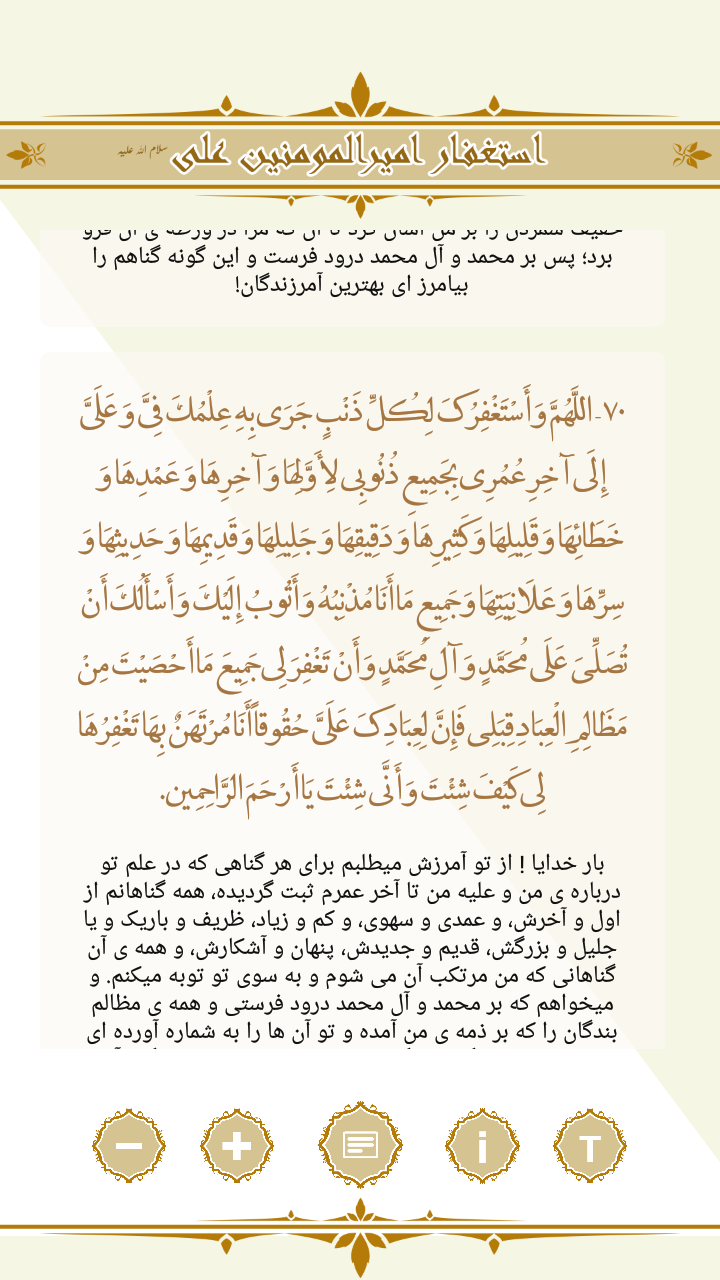 استغفار امیرالمومنین علی سلام الله علیه
برد؛ پس بر محمد و آل محمد درود فرست و این گونه گناهم را
بیامرز ای بهترین آمرزندگان!
۷۰-اللَّهُمَّ وَ أَسْتَغْفِرُکَ لِکُلِّ ذَنْبٍ جَرَى بِهِ عِلْمُكَ فِیَّ وَ عَلَیَّ
إِلَى آخِرِ عُمُرِی بِجَمِیعِ ذُنُوبِی لِأَوَّلِهَا وَ آخِرِهَا وَ عَمْدِهَا وَ
خَطَائِهَا وَ قَلِیلِهَا وَ کَثِیرِهَا وَ دَقِیقِهَا وَ جَلِیلِهَا وَ قَدِیمِهَا وَ حَدِیثِهَا وَ
سِرِّهَا وَ عَلَانِیَتِهَا وَ جَمِیعِ مَا أَنَا مُذْنِبُهُ وَ أَتُوبُ إِلَیْكَ وَ أَسْأَلُكَ أَنْ
تُصَلِّیَ عَلَى مُحَمَّدٍ وَ آلِ مُحَمَّدٍ وَ أَنْ تَغْفِرَ لِی جَمِیعَ مَا أَحْصَیْتَ مِنْ
مَظَالِمِ الْعِبَادِ قِبَلِی فَإِنَّ لِعِبَادِکَ عَلَیَّ حُقُوقاً أَنَا مُرْتَهَنٌ بِهَا تَغْفِرُهَا
لِی کَیْفَ شِئْتَ وَ أَنَّى شِئْتَ یَا أَرْحَمَ الرَّاحِمِین.
بار خدایا ! از تو آمرزش میطلبم برای هر گناهی که در علم تو
درباره ی من و علیه من تا آخر عمرم ثبت گردیده، همه گناهانم از
اول و آخرش، و عمدی و سهوی، و کم و زیاد، ظریف و باریک و یا
جلیل و بزرگش، قدیم و جدیدش، پنهان و آشکارش، و همه ی آن
گناهانی که من مرتکب آن می شوم و به سوی تو توبه میکنم. و
میخواهم که بر محمد و آل محمد درود فرستی و همه ی مظالم
بندگان را که بر ذمه ی من آمده و تو آن ها را به شماره آورده ای
T